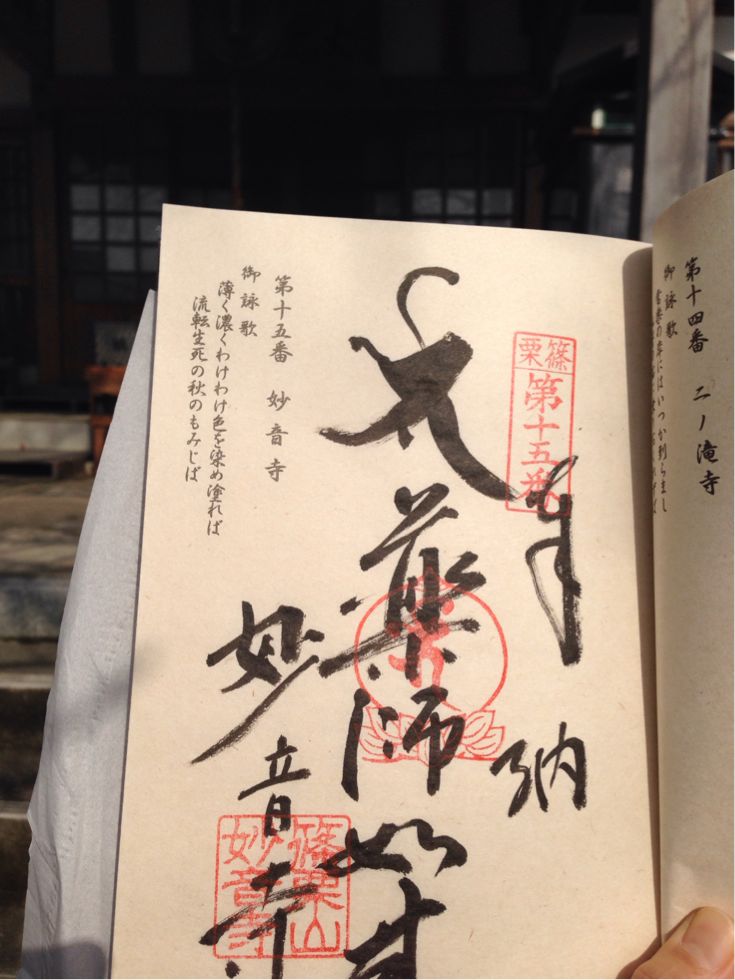 第十四番 二ノ滝寺
御詠歌
篠栗
第十五番
奉納
薬師如来
妙音寺
篠栗山
妙音寺
第十五番 妙音寺
御詠歌
薄く濃くわけわけ色を染め塗れば
流転生死の秋のもみじば